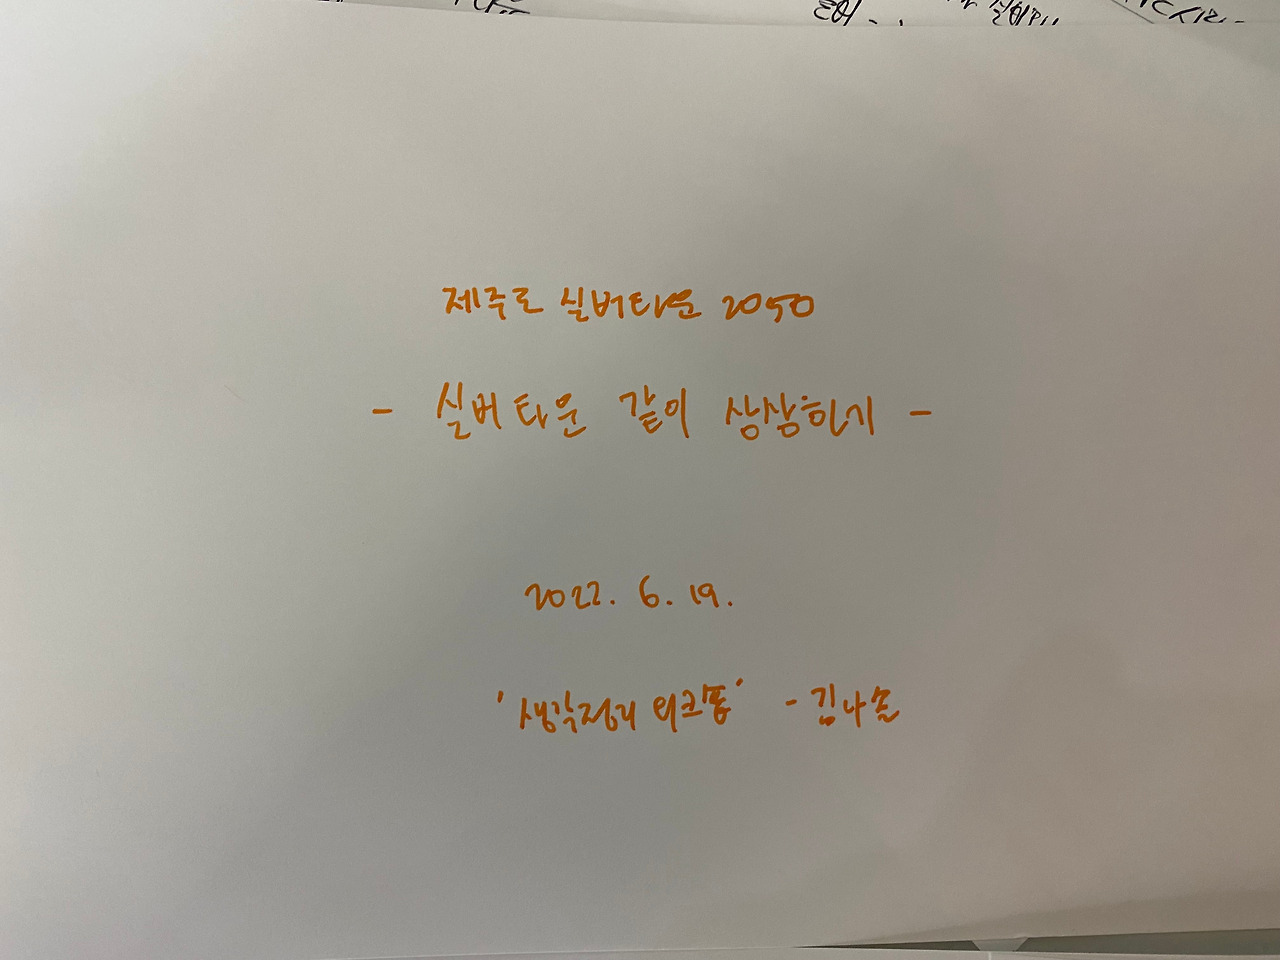 제주로 실버타운 2050
- 실버타운 같이 상상하기 -
2022. 6. 19.
'생각정리 워크숍' - 김나솔